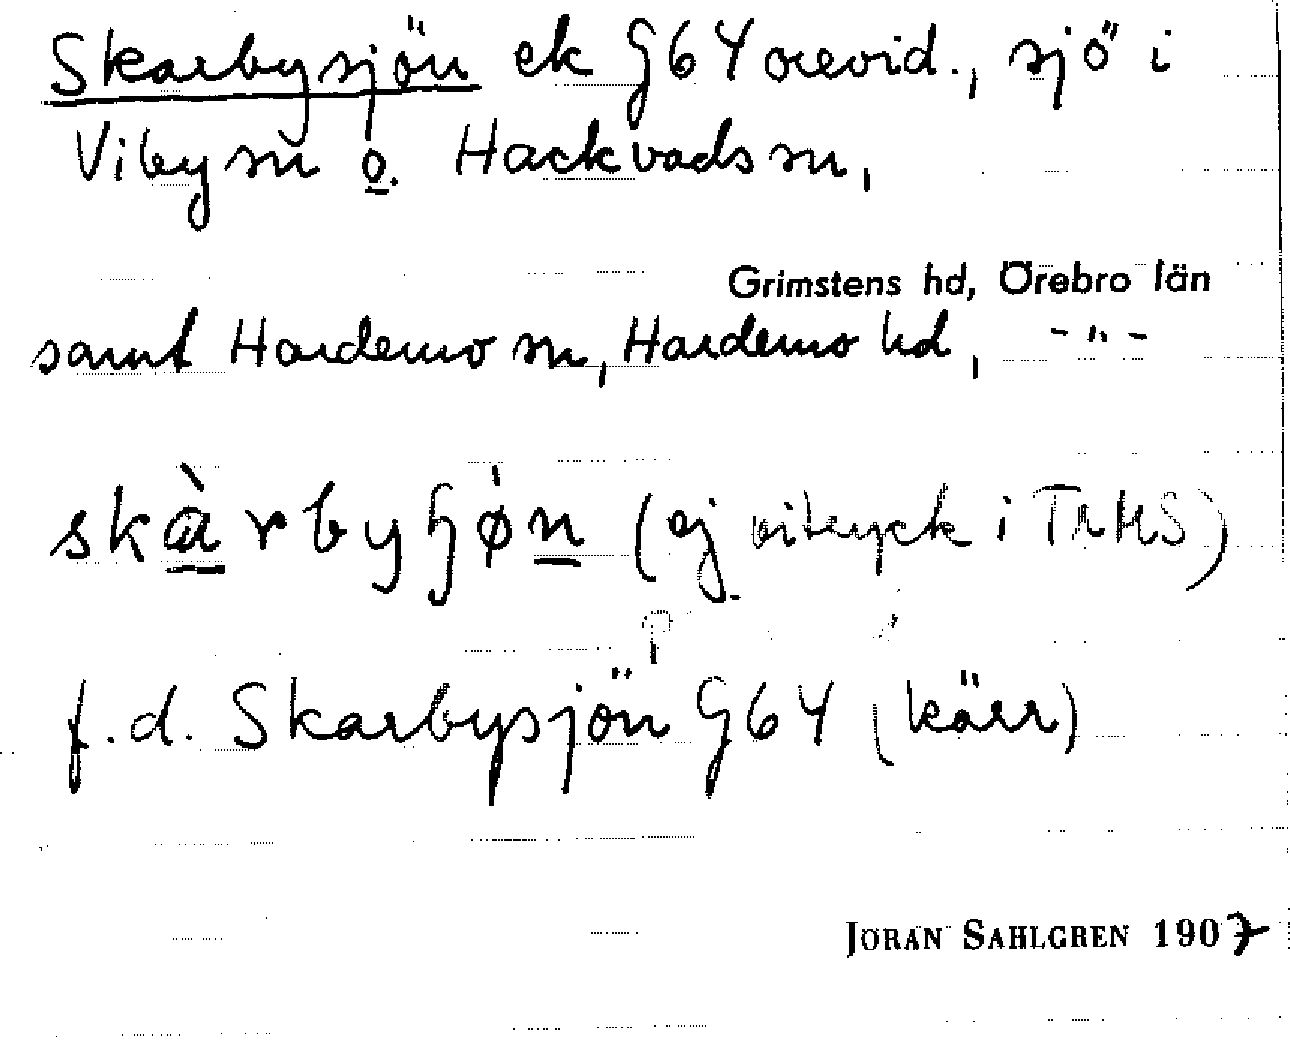 Skarbysjön ek G64 orevid., sjö i
Viby sn o. Hackvads sn,
Grimstens hd, Örebro län
samt Hardemo sn, Hardemo hd, -"-
skàrbyɧø̀n (ej uttryck i TrHS)
f.d. Skarbysjön G64 (kärr)
JÖRAN SAHLGREN 1907